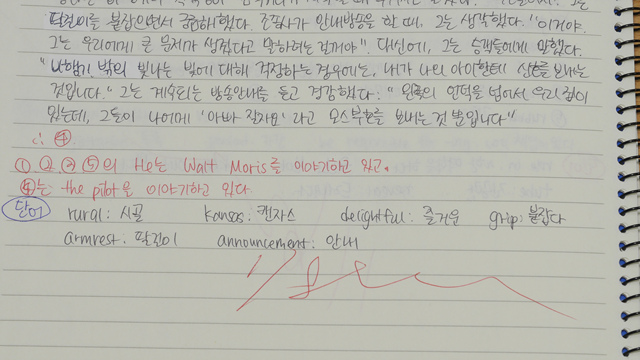 팔걸이를 붙잡으면서 궁금해했다. 조종사가 안내방송을 할 때, 그는 생각했다. "이거야.
그는 우리에게 큰 문제가 생겼다고 말하려는 걸꺼야". 대신에, 그는 승객들에게 말했다.
"비행기 밖의 빛나는 빛에 대해 걱정하는 경우에는, 내가 나의 아이한테 신호를 보내는
것입니다." 그는 계속되는 방송안내를 듣고 경감했다: "왼쪽의 언덕을 넘어서 우리 집이
있는데, 그들이 나에게 '아빠 잘자요' 라고 모스부호를 보내는 것 뿐입니다"
∴ ④
① ② ③ ⑤의 He는 Walt Moris를 이야기하고 있고.
④는 the pilot을 이야기하고 있다
단어 rural: 시골 Kansas: 캔자스 delightful: 즐거운 grip: 붙잡다
armrest: 팔걸이 announcement: 안내